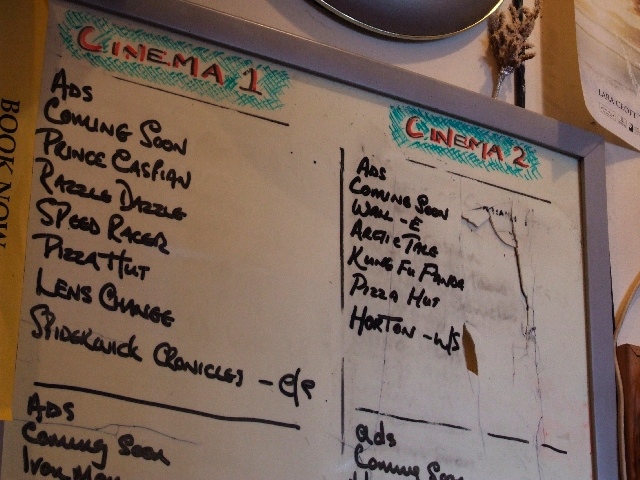 CINEMA 1
ADS
COMING SOON
PRINCE CASPIAN
RAZZLE DAZZLE
SPEED RACER
PIZZA HUT
LENS CHANGE
SPIDERWICK CRONICLES - C/S
ADS
Coming Soon
CINEMA 2
ADS
COMING SOON
WALL-E
ARCTIC TALE
KUNG FU PANDA
PIZZA HUT
HORTON - W/S
ads
Coming Soon
BOOK NOW
LARA CROFT